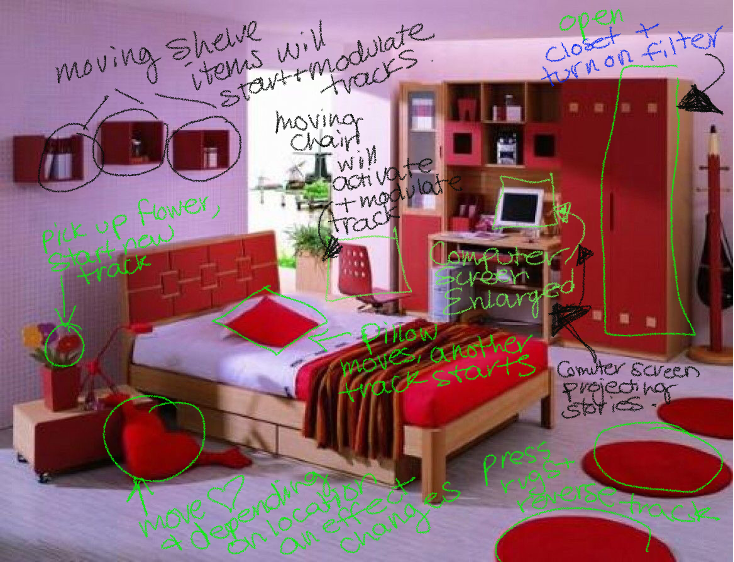 moving shelve
items will
start + modulate
tracks.
open
closet +
turn on filter
moving
chair
will
activate
+ modulate
track
Pick up flower,
start new
track
Computer
screen
Enlarged
Pillow
moves, another
track starts
Comuter screen
projecting
stories.
move ♡
+ depending
on location
an effect
changes
press
right
reverse track